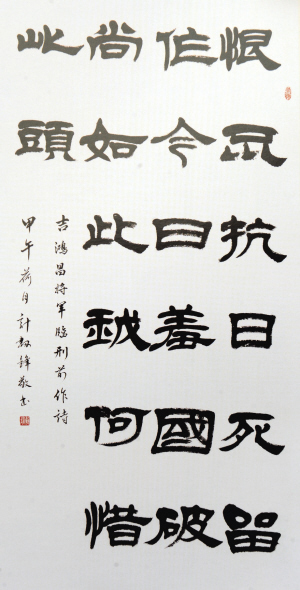 恨不抗日死留
作今日羞國破
尚如此我何惜
此頭
吉鴻昌將軍臨刑前作詩
甲午荷月計鋒敬書